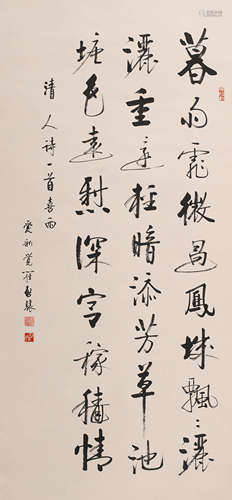 暮雨霏微過鳳城飄〻灑
灑重還輕暗添芳草池
塘色遠慰深宮稼穡情
清人詩一首喜雨
愛新覺羅啟驤